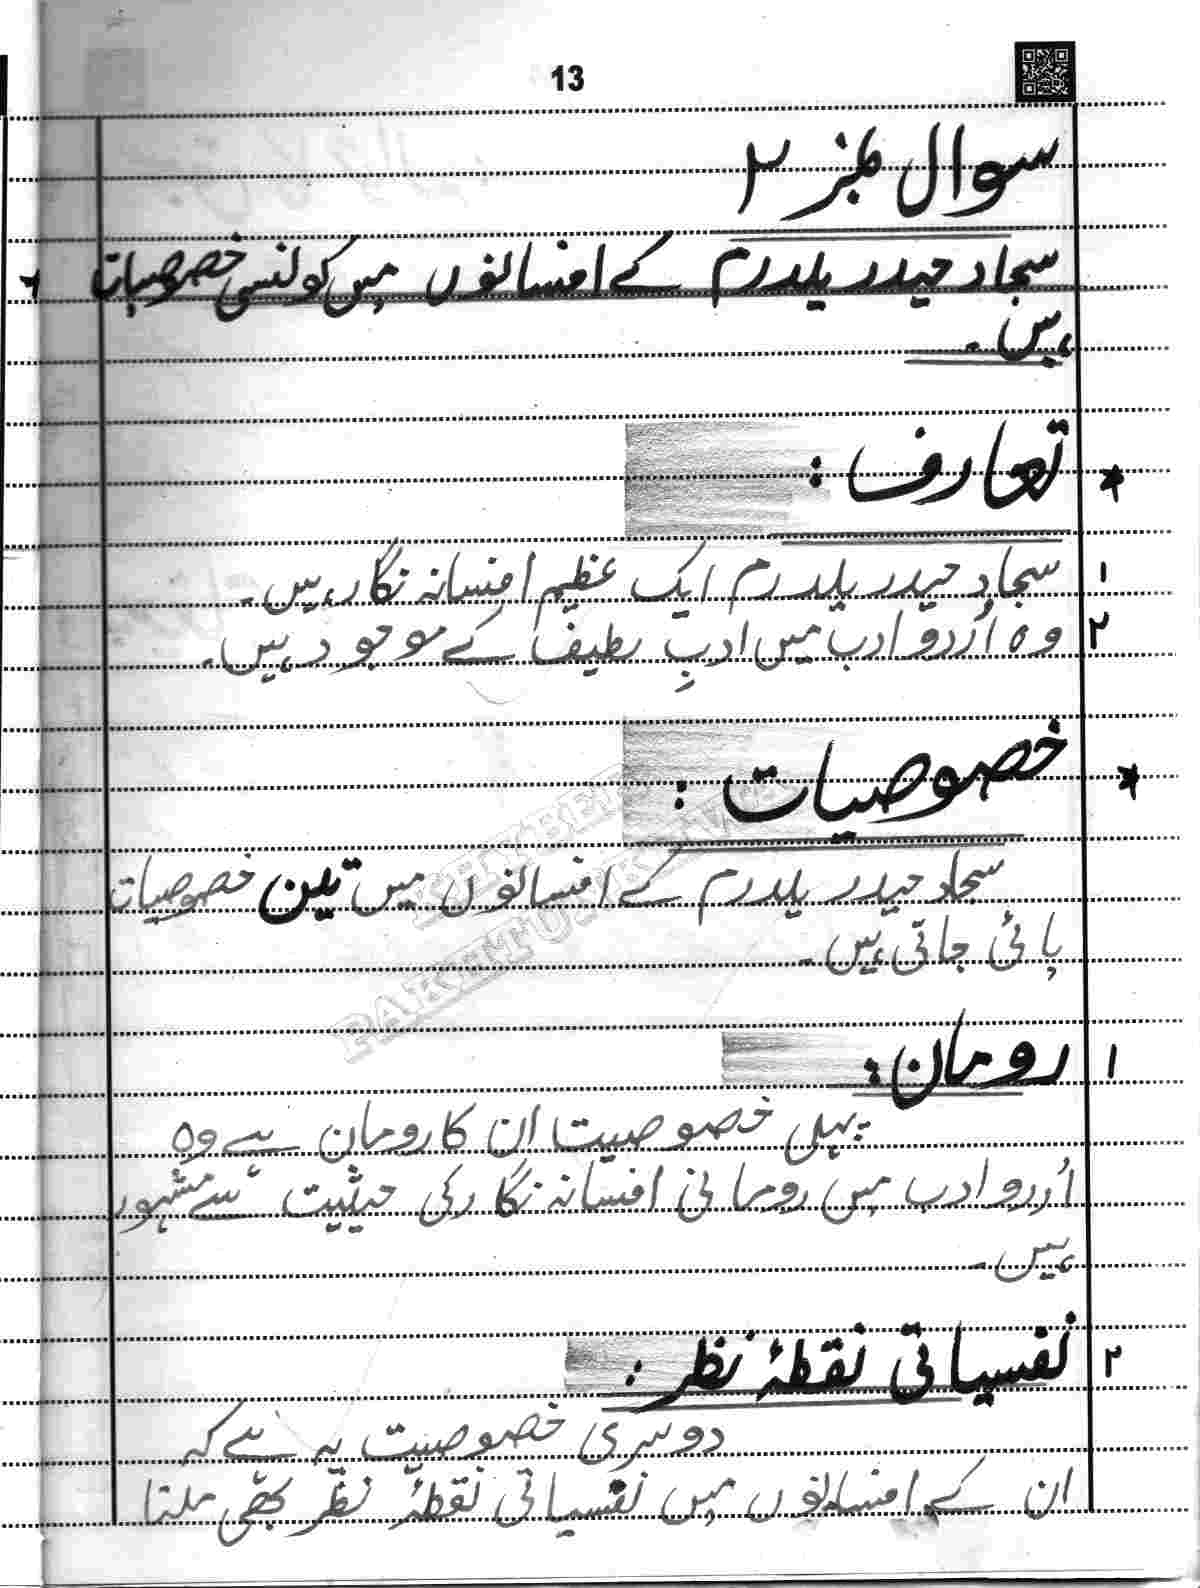 13
سوال نمبر ۲
سجاد حیدر یلدرم کے افسانوں میں کونسی خصوصیات
ہیں۔
تعارف :
۱ سجاد حیدر یلدرم ایک عظیم افسانہ نگار ہیں۔
۲ وہ اُردو ادب میں ادبِ لطیف کے موجود ہیں۔
خصوصیات :
سجاد حیدر یلدرم کے افسانوں میں تین خصوصیات
پائی جاتی ہیں۔
KHYBER
PAKHTUNKHWA
۱ رومان :
پہلی خصوصیت ان کا رومان ہے وہ
اُردو ادب میں رومانی افسانہ نگار کی حیثیت سے مشہور
ہیں۔
۲ نفسیاتی نقطۂ نظر :
دوسری خصوصیت یہ ہے کہ
ان کے افسانوں میں نفسیاتی نقطۂ نظر بھی ملتا